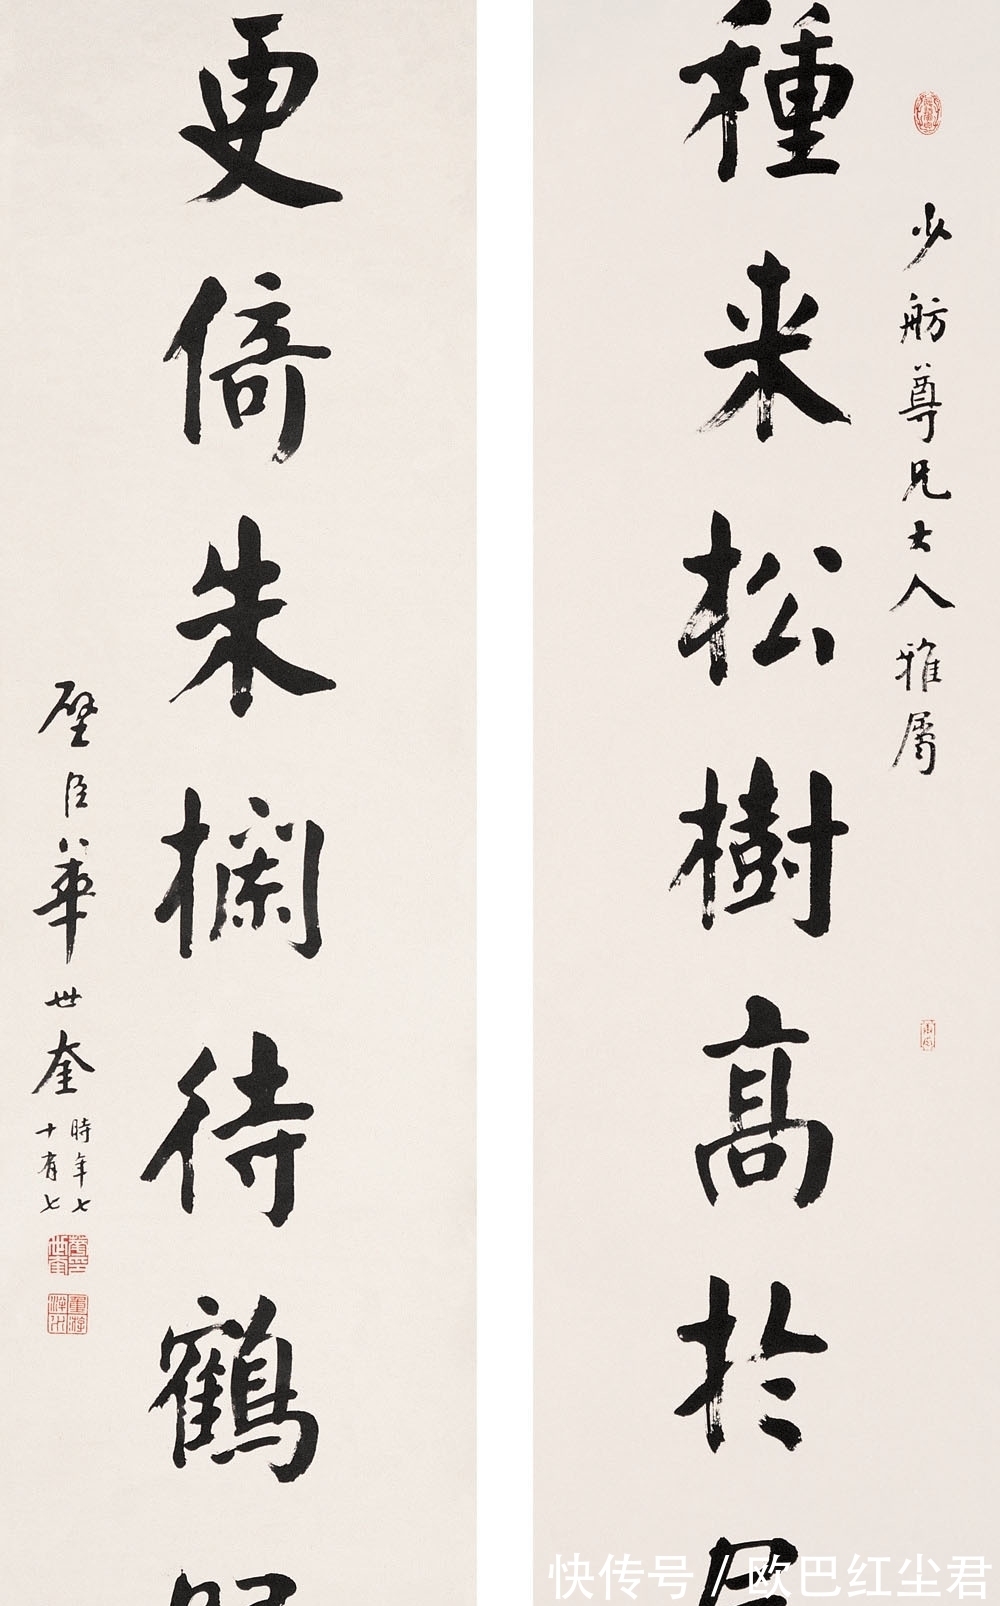 少舫尊兄大人雅属
種来松樹高於
更倚朱欄待鶴
壁臣華世奎
時年七
十有七
快传号/欧巴红尘君